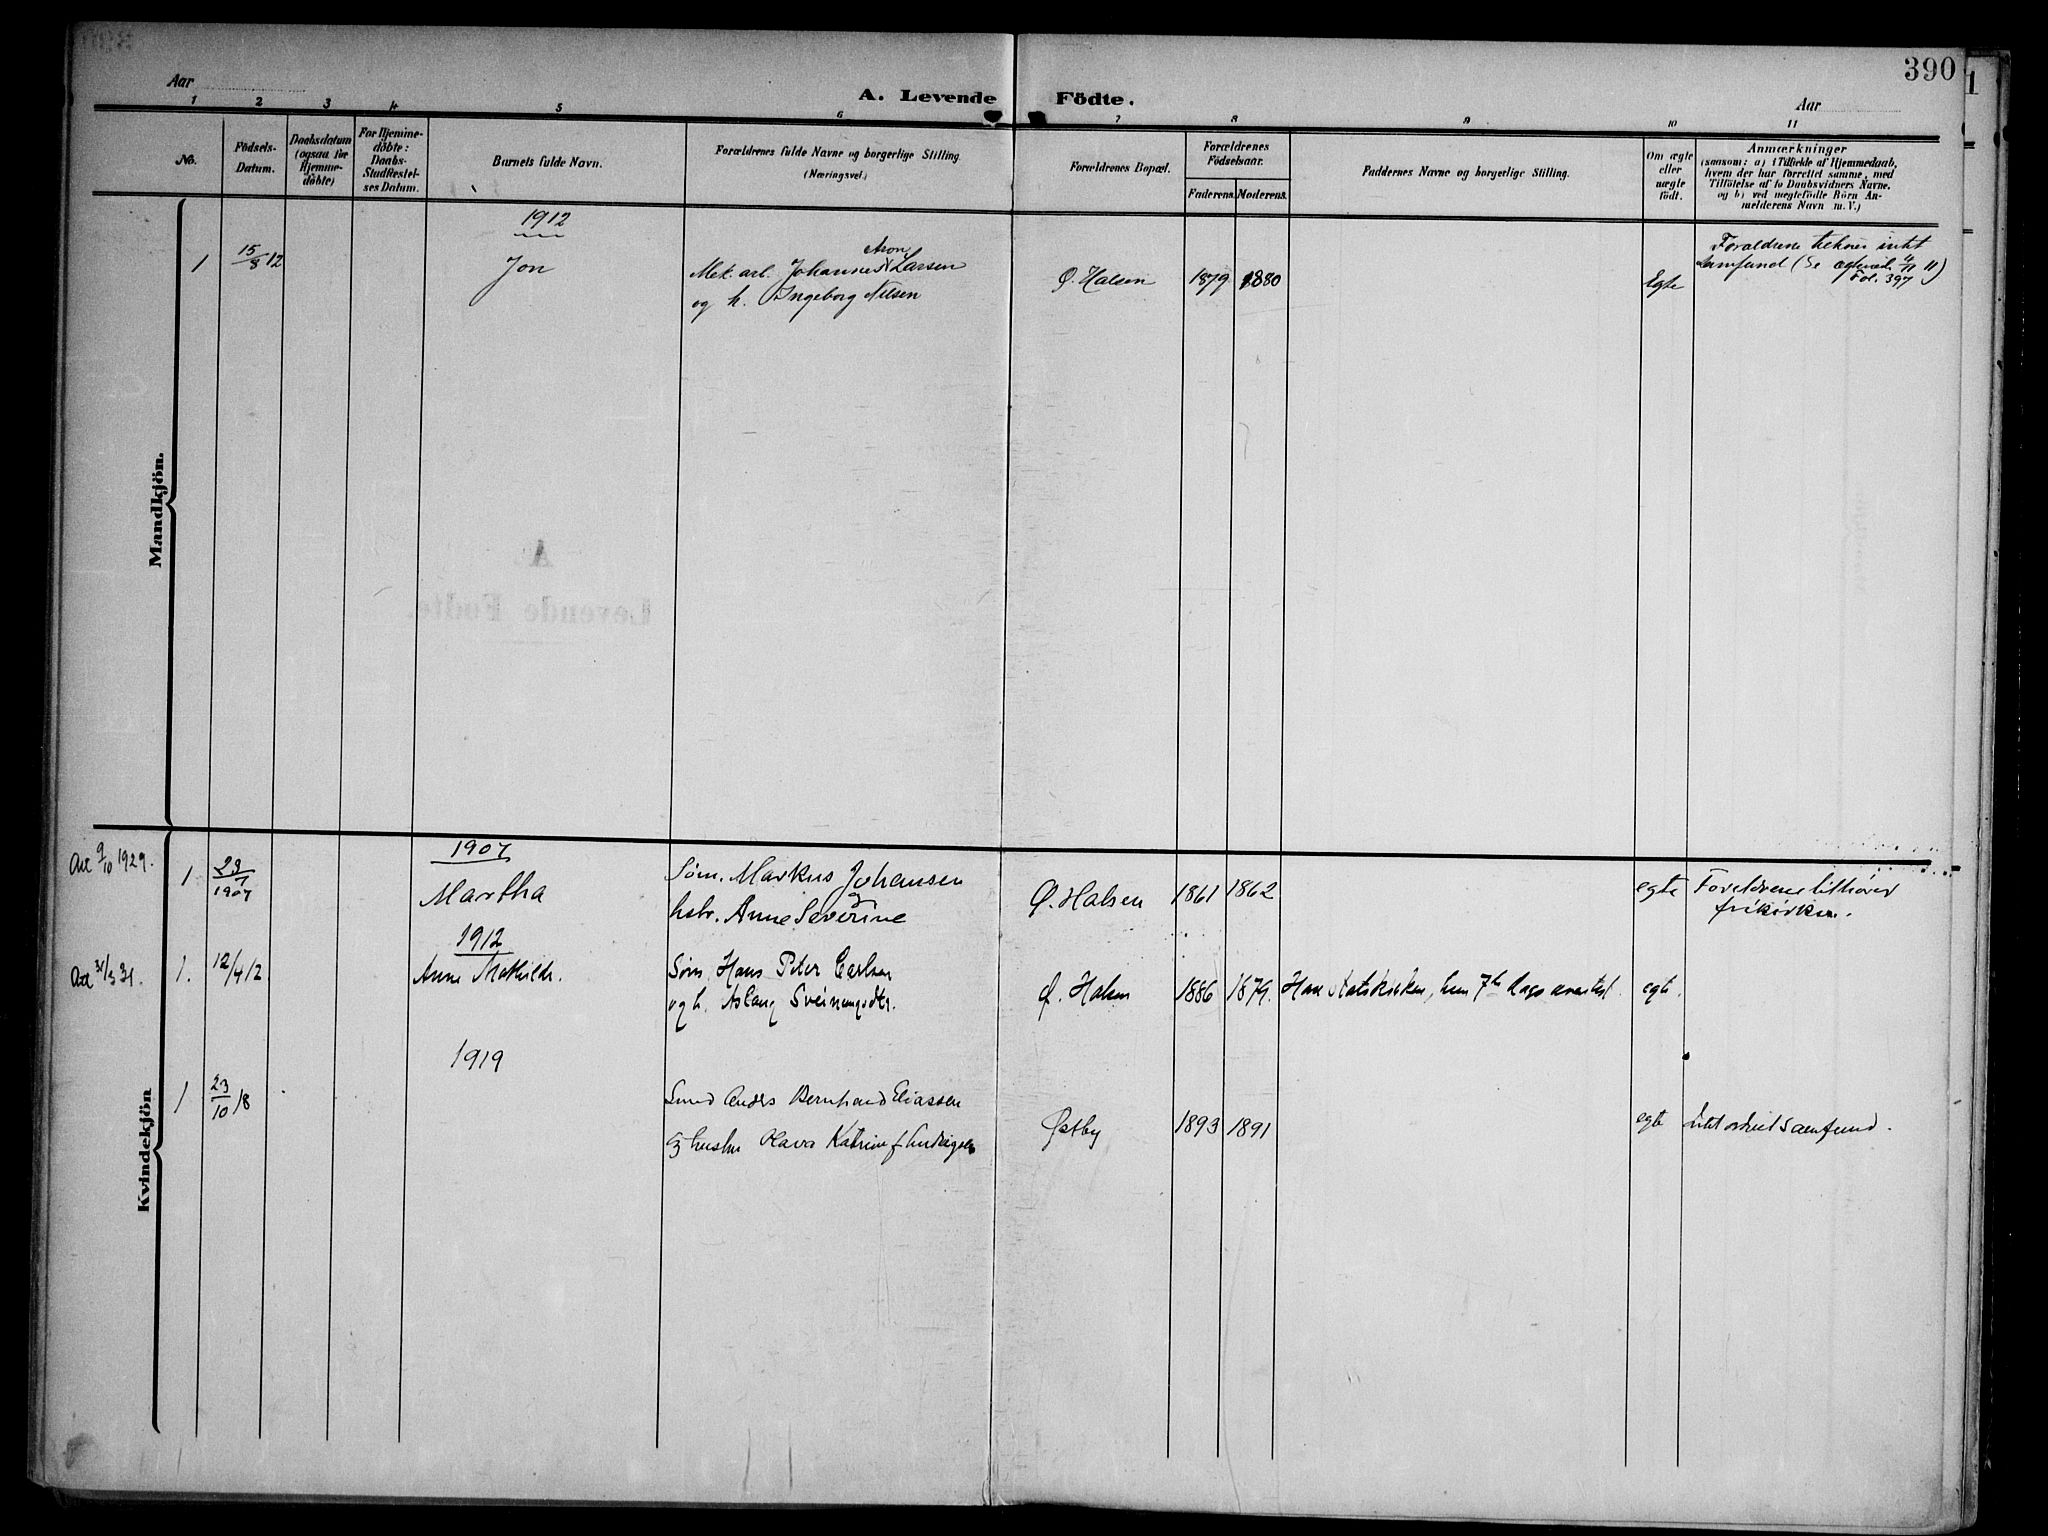 390
Aar
A. Levende Födte.
Aar
1 2 3 4 5 6 7 8 9 10 11
No.
Födsels-
Datum.
Daabsdatum
(ogsaa for
Hjemme-
döbte)
For Hjemme-
döbte:
Daabs-
Stadfæstel-
ses Datum.
Barnets fulde Navn.
Forældrenes fulde Navne og borgerlige Stilling.
(Næringsvei.)
Forældrenes Bopæl.
Forældrenes
Födselsaar.
Faderens. Moderens.
Faddernes Navne og borgerlige Stilling.
Om ægte
eller
uægte
födt.
Anmærkninger
(saasom: a) i Tilfælde af Hjemmedaab,
hvem der har forrettet samme, med
Tilföielse af to Daabsvidners Navne.
og b) ved uægtefödte Börn An-
melderens Navn m. V.)
Mandkjön.
1912
1 15/8 12 Jon
Aron
Mek. arb. Johannes Larsen
og h. Ingeborg Nilsen
Ø. Halsen 1879 1880
Egte
Forældrene tilhører intet
samfund (Se 4/11 11)
Fol. 397
Kvindekjön
1907
Att 9/10 1929. 1 23/7 1907 Martha
Søm. Markus Johansen
hstr. Anne Severine
Ø. Halsen 1861 1862 egte
Foreldrene tilhører
frikirken.
1912
Att 31/3 31. 1. 12/4 12 Anne Mathilde.
Søm. Hans Peter Carlsen
og h. Aslaug Sveinungsdtr.
Ø. Halsen 1886 1879. Han statskirken, hun 7de dags adventist. egte.
1919
1 23/10 18
Smed Anders Bernhard Eliassen
og hustru Olava Katrine f. Ludvigsen
Østby 1893 1891 egte
samfund.